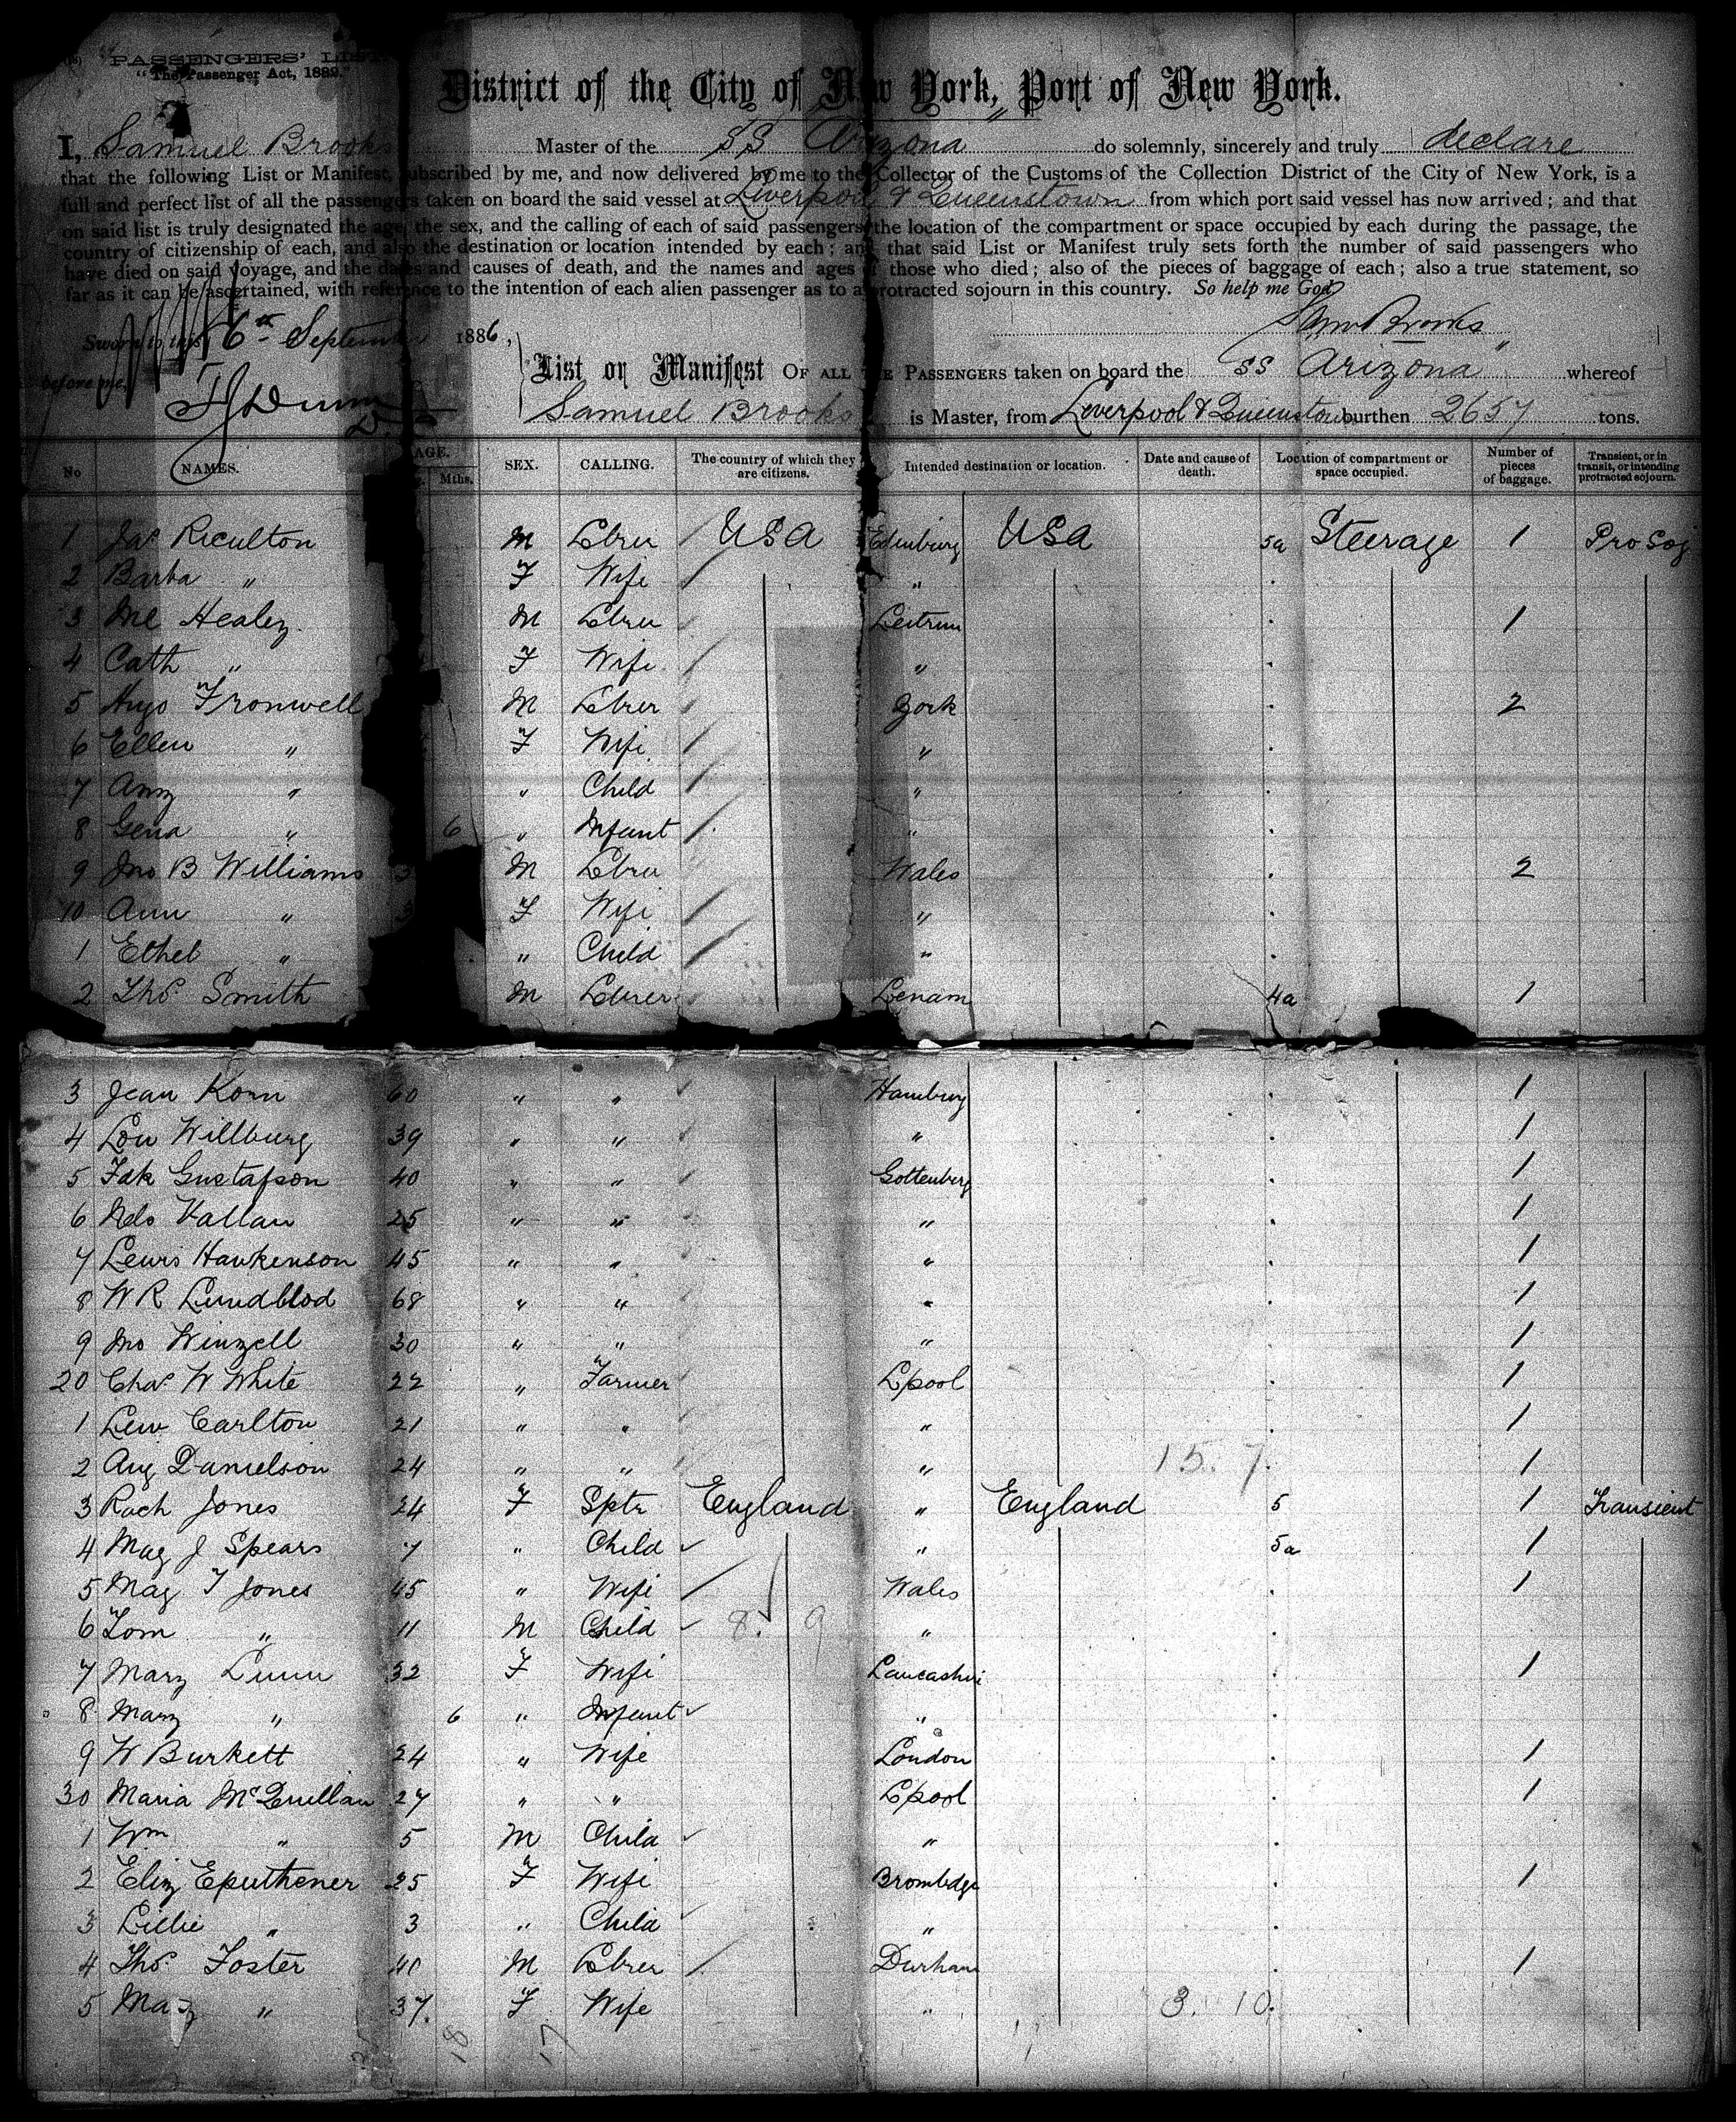 PASSENGERS' LIST.
"The Passenger Act, 1882."
District of the City of New York, Port of New York.
I, Samuel Brooks Master of the SS "Arizona" do solemnly, sincerely and truly declare
that the following List or Manifest, subscribed by me, and now delivered by me to the Collector of the Customs of the Collection District of the City of New York, is a
full and perfect list of all the passengers taken on board the said vessel at Liverpool & Queenstown from which port said vessel has now arrived; and that
on said list is truly designated the age, the sex, and the calling of each of said passengers, the location of the compartment or space occupied by each during the passage, the
country of citizenship of each, and also the destination or location intended by each; and that said List or Manifest truly sets forth the number of said passengers who
have died on said voyage, and the dates and causes of death, and the names and ages of those who died; also of the pieces of baggage of each; also a true statement, so
far as it can be ascertained, with reference to the intention of each alien passenger as to a protracted sojourn in this country. So help me God
Sworn to this 6th September 1886, Saml Brooks
before me,
List or Manifest OF ALL THE PASSENGERS taken on board the SS "Arizona" whereof
Samuel Brooks is Master, from Liverpool & Queenstown burthen 2657 tons.
No NAMES. AGE. Mths. SEX. CALLING. The country of which they are citizens. Intended destination or location. Date and cause of death. Location of compartment or space occupied. Number of pieces of baggage. Transient, or in transit, or intending protracted sojourn.
1 Jas Riculton M Lbrer USA Edinburg USA 5a Steerage 1 Pro Soj
2 Barba " F Wife "
3 Ml Healey M Lbrer Leitrim 1
4 Cath " F Wife "
5 Hugo Fronwell M Lbrer York 2
6 Ellen " F Wife "
7 Amy " " Child "
8 Gena " 6 " Infant "
9 Jno B Williams 3 M Lbrer Wales 2
10 Ann " F Wife "
1 Ethel " " Child "
2 Thos Smith M Lbrer 4a 1
3 Jean Korn 60 " " Hamburg 1
4 Lou Willburg 39 " " " 1
5 Fdk Gustafson 40 " " Gottenberg 1
6 Nels Vallan 25 " " " 1
7 Lewis Hawkenson 45 " " " 1
8 W R Lundblod 68 " " " 1
9 Jno Winzell 30 " " " 1
20 Chas W White 22 " Farmer L'pool 1
1 Lew Carlton 21 " " " 1
2 Aug Danielson 24 " " " 15. 7. 1
3 Rach Jones 24 F Sptr England " England 5 1 Transient
4 Mag J Spears 7 " Child " 5a 1
5 Mag T Jones 45 " Wife Wales 1
6 Tom " 11 M Child 8. 9 "
7 Mary Lunn 32 F Wife Lancashire 1
8 Mary " 6 " Infant "
9 W Burkett 24 " Wife London 1
30 Maria McQuillan 27 " " L'pool 1
1 Wm " 5 M Child "
2 Eliz Eputhener 25 F Wife Brombdge 1
3 Lillie " 3 " Child "
4 Thos Foster 40 M Lbrer Durham 1
5 Mary " 37. F Wife " 3. 10.
18 17